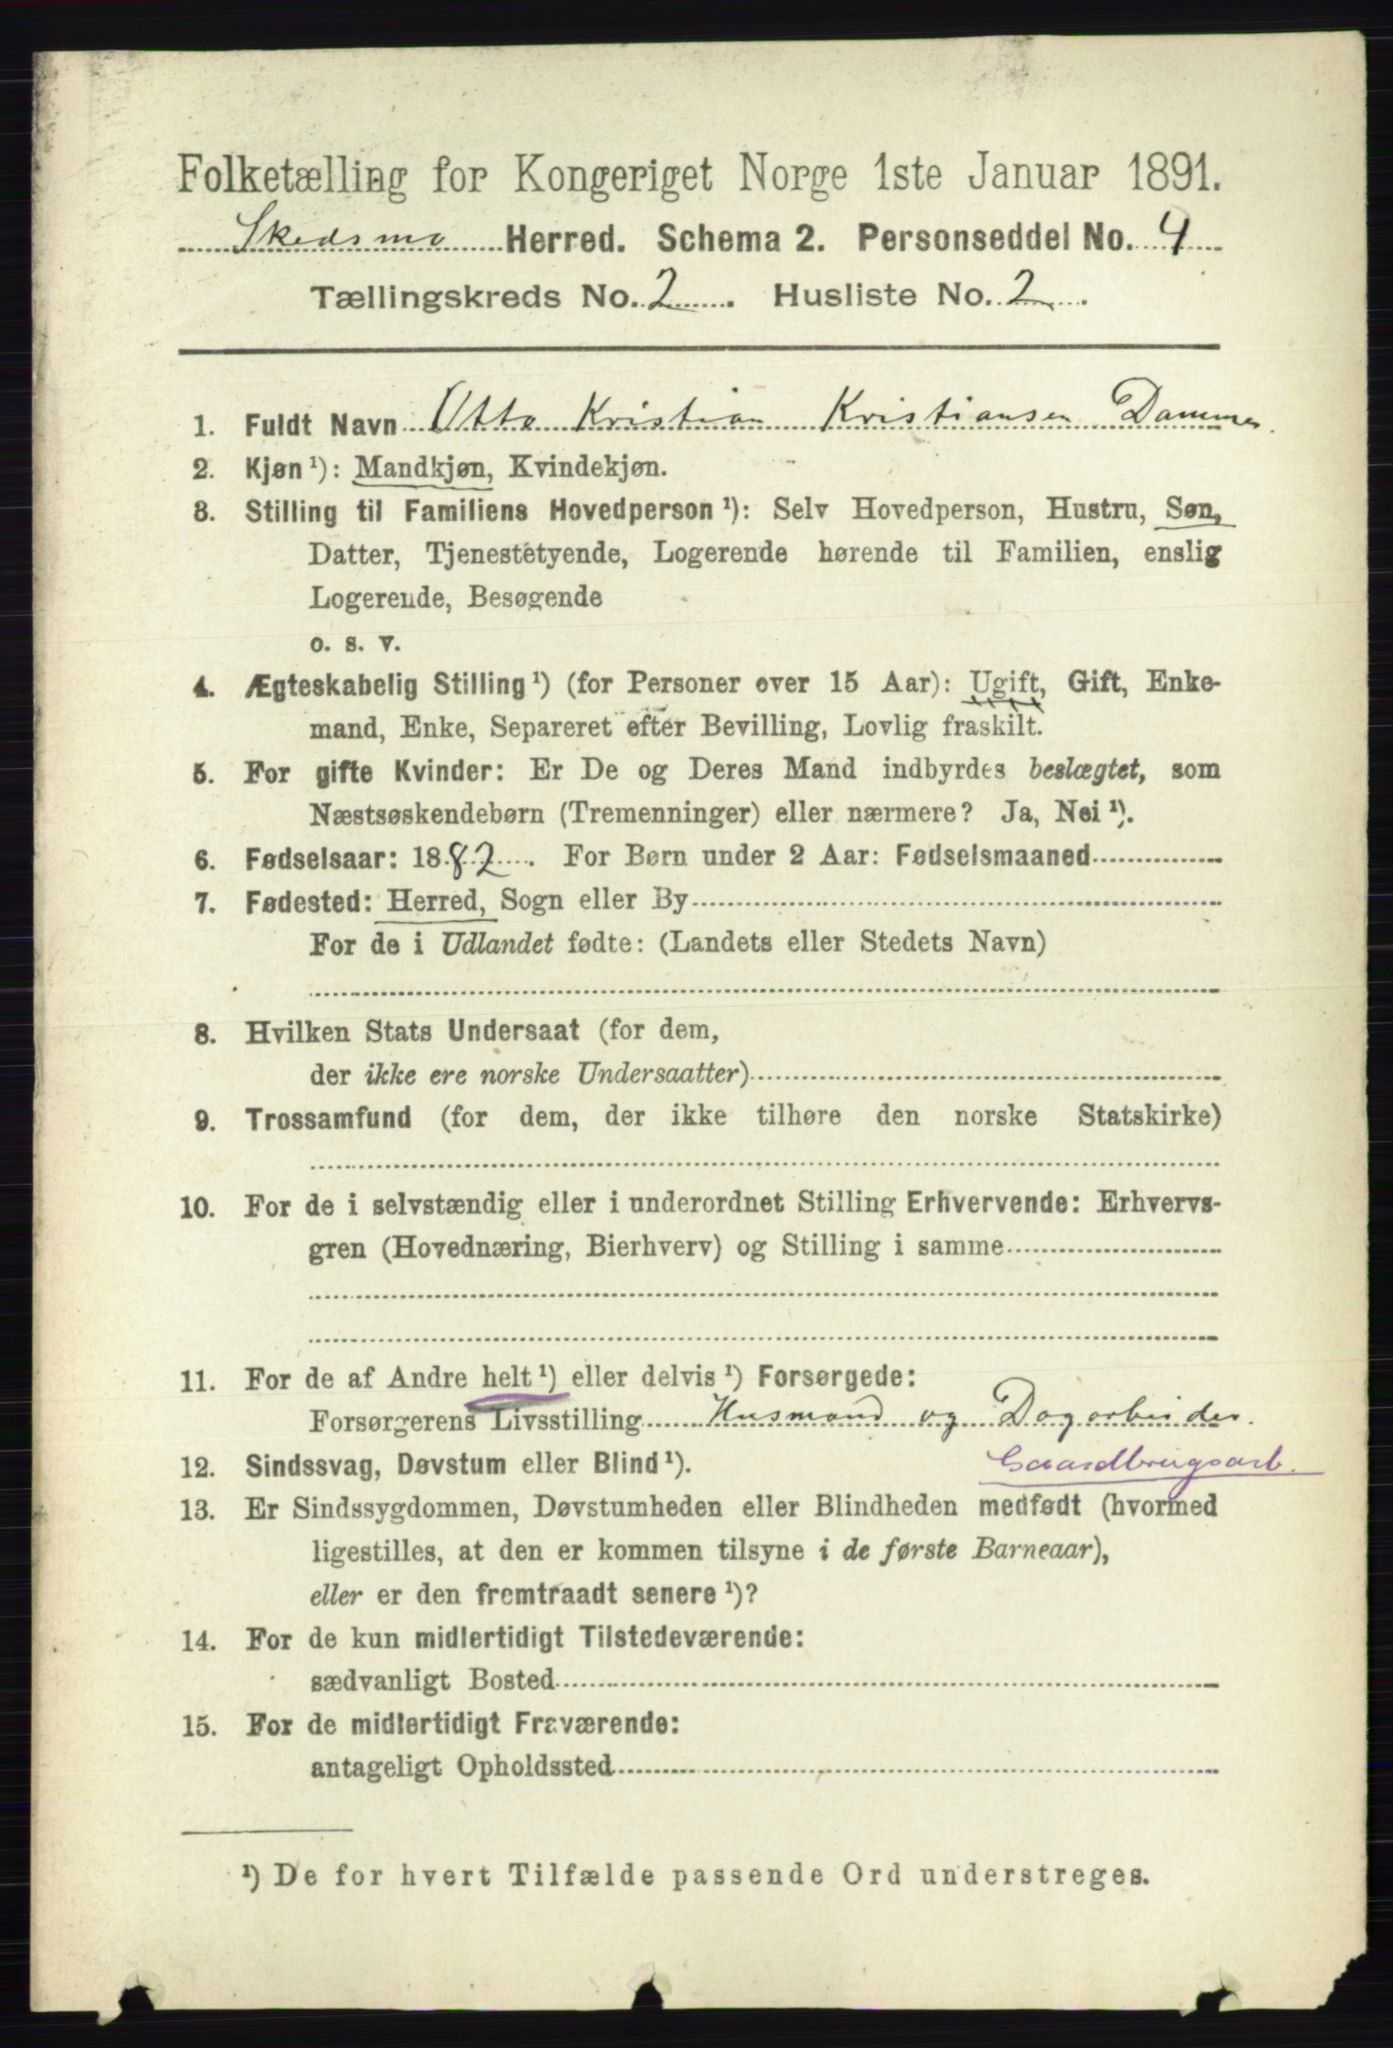 Folketælling for Kongeriget Norge 1ste Januar 1891.
Skedsmo Herred. Schema 2. Personseddel No. 4
Tællingskreds No. 2. Husliste No. 2.
1. Fuldt Navn Otto Kristian Kristiansen Dammen
2. Kjøn ¹): Mandkjøn, Kvindekjøn.
3. Stilling til Familiens Hovedperson ¹): Selv Hovedperson, Hustru, Søn,
Datter, Tjenestetyende, Logerende hørende til Familien, enslig
Logerende, Besøgende
o. s. v.
4. Ægteskabelig Stilling ¹) (for Personer over 15 Aar): Ugift, Gift, Enke-
mand, Enke, Separeret efter Bevilling, Lovlig fraskilt.
5. For gifte Kvinder: Er De og Deres Mand indbyrdes beslægtet, som
Næstsøskendebørn (Tremenninger) eller nærmere? Ja, Nei ¹).
6. Fødselsaar: 1882. For Børn under 2 Aar: Fødselsmaaned
7. Fødested: Herred, Sogn eller By
For de i Udlandet fødte: (Landets eller Stedets Navn)
8. Hvilken Stats Undersaat (for dem,
der ikke ere norske Undersaatter)
9. Trossamfund (for dem, der ikke tilhøre den norske Statskirke)
10. For de i selvstændig eller i underordnet Stilling Erhvervende: Erhvervs-
gren (Hovednæring, Bierhverv) og Stilling i samme
11. For de af Andre helt ¹) eller delvis ¹) Forsørgede:
Forsørgerens Livsstilling Husmand og Dagarbeider.
12. Sindssvag, Døvstum eller Blind ¹). Gaardbrugsarb.
13. Er Sindssygdommen, Døvstumheden eller Blindheden medfødt (hvormed
ligestilles, at den er kommen tilsyne i de første Barneaar),
eller er den fremtraadt senere ¹)?
14. For de kun midlertidigt Tilstedeværende:
sædvanligt Bosted
15. For de midlertidigt Fraværende:
antageligt Opholdssted
¹) De for hvert Tilfælde passende Ord understreges.